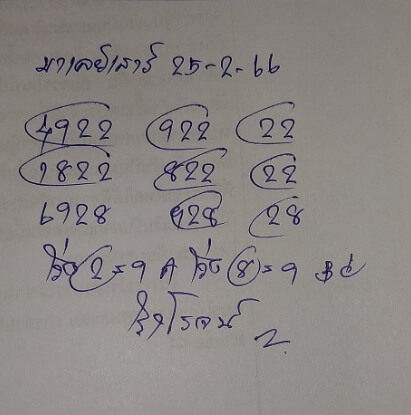 มาเลย์เสาร์ 25-2-66
4922 922 22
1822 822 22
6928 928 28
วิ่ง 2=9 A วิ่ง 8=9
รุ่งโรจน์